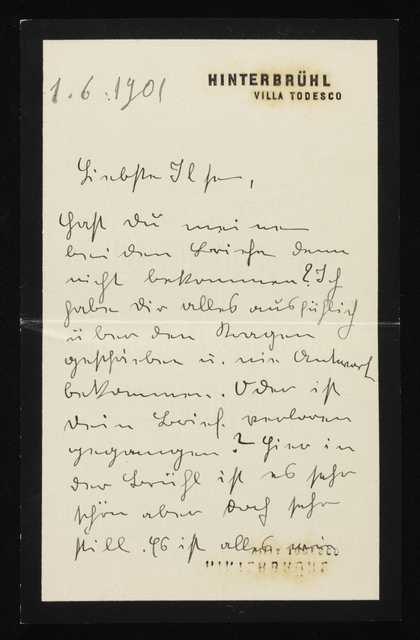 1.6.1901
HINTERBRÜHL
VILLA TODESCO
Liebste Ilse,
hast du meinen
beiden Briefe denn
nicht bekommen? Ich
habe dir alles ausführlich
über den Kragen
geschrieben u. nie Antwort
bekommen. Oder ist
dein Brief verloren
gegangen? Hier in
der Brühl ist es sehr
schön aber doch sehr
still. Es ist alles